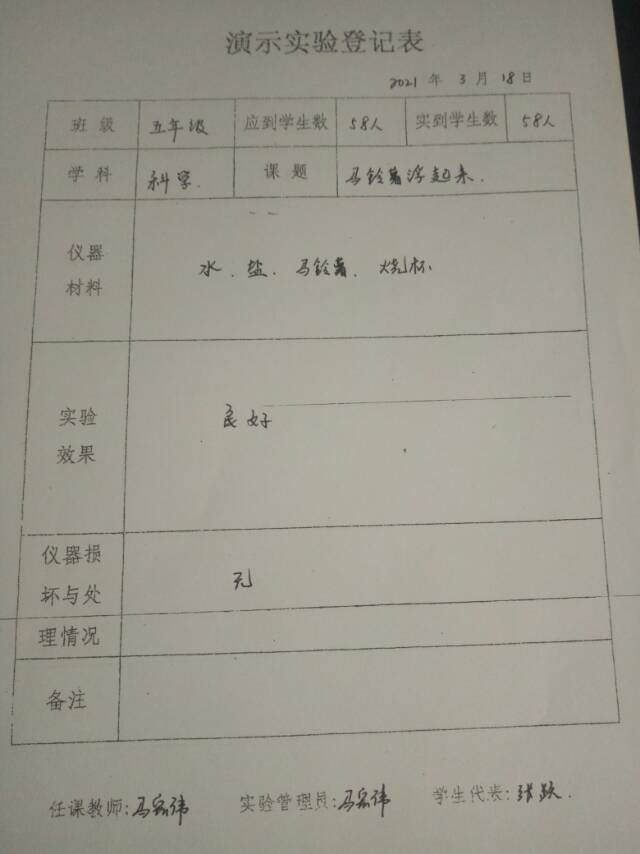 演示实验登记表
2021 年 3 月 18 日
班 级 五年级 应到学生数 58人 实到学生数 58人
学 科 科学. 课 题 马铃薯浮起来.
仪器
材料
水、盐、马铃薯、烧杯
实验
效果
良好
仪器损
坏与处
理情况
无
备注
任课教师:马宏伟 实验管理员:马宏伟 学生代表:张跃.